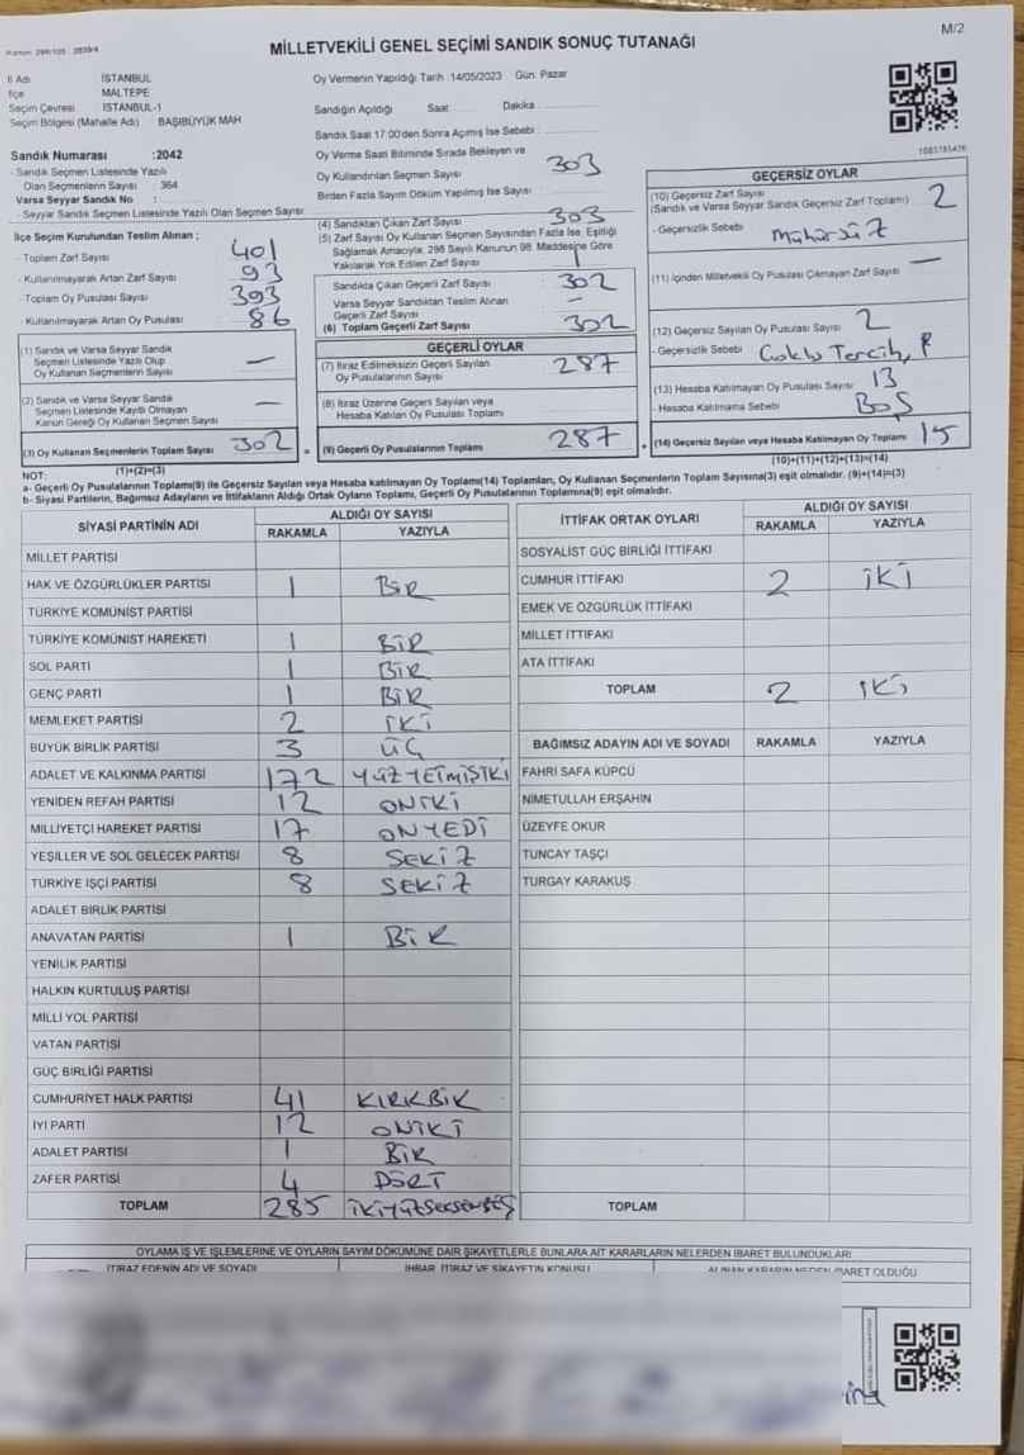 M/2
MİLLETVEKİLİ GENEL SEÇİMİ SANDIK SONUÇ TUTANAĞI
İl Adı İSTANBUL
İlçe MALTEPE
Seçim Çevresi İSTANBUL-1
Seçim Bölgesi (Mahalle Adı) BAŞIBÜYÜK MAH
Oy Vermenin Yapıldığı Tarih :14/05/2023 Gün: Pazar
Sandığın Açıldığı Saat Dakika
Sandık Saat 17:00'den Sonra Açılmış İse Sebebi
Sandık Numarası :2042
- Sandık Seçmen Listesinde Yazılı
Olan Seçmenlerin Sayısı : 364
Varsa Seyyar Sandık No :
- Seyyar Sandık Seçmen Listesinde Yazılı Olan Seçmen Sayısı
Oy Verme Saati Bitiminde Sırada Bekleyen ve
Oy Kullandırılan Seçmen Sayısı 303
Birden Fazla Sayım Döküm Yapılmış İse Sayısı
İlçe Seçim Kurulundan Teslim Alınan ;
- Toplam Zarf Sayısı 401
- Kullanılmayarak Artan Zarf Sayısı 93
- Toplam Oy Pusulası Sayısı 393
- Kullanılmayarak Artan Oy Pusulası 86
(1) Sandık ve Varsa Seyyar Sandık
Seçmen Listesinde Yazılı Olup
Oy Kullanan Seçmenlerin Sayısı —
(2) Sandık ve Varsa Seyyar Sandık
Seçmen Listesinde Kayıtlı Olmayan
Kanun Gereği Oy Kullanan Seçmen Sayısı —
(3) Oy Kullanan Seçmenlerin Toplam Sayısı 302
(1)+(2)=(3)
(4) Sandıktan Çıkan Zarf Sayısı 303
(5) Zarf Sayısı Oy Kullanan Seçmen Sayısından Fazla İse, Eşitliği
Sağlamak Amacıyla; 298 Sayılı Kanunun 98. Maddesine Göre
Yakılarak Yok Edilen Zarf Sayısı 1
Sandıkta Çıkan Geçerli Zarf Sayısı 302
Varsa Seyyar Sandıktan Teslim Alınan
Geçerli Zarf Sayısı —
(6) Toplam Geçerli Zarf Sayısı 302
GEÇERLİ OYLAR
(7) İtiraz Edilmeksizin Geçerli Sayılan
Oy Pusulalarının Sayısı 287
(8) İtiraz Üzerine Geçerli Sayılan veya
Hesaba Katılan Oy Pusulası Toplamı
(9) Geçerli Oy Pusulalarının Toplamı 287
GEÇERSİZ OYLAR
(10) Geçersiz Zarf Sayısı
(Sandık ve Varsa Seyyar Sandık Geçersiz Zarf Toplamı) 2
- Geçersizlik Sebebi Mühürsüz
(11) İçinden Milletvekili Oy Pusulası Çıkmayan Zarf Sayısı —
(12) Geçersiz Sayılan Oy Pusulası Sayısı 2
- Geçersizlik Sebebi Çoklu Tercih,
(13) Hesaba Katılmayan Oy Pusulası Sayısı 13
- Hesaba Katılmama Sebebi BOŞ
(14) Geçersiz Sayılan veya Hesaba Katılmayan Oy Toplamı 15
(10)+(11)+(12)+(13)=(14)
NOT:
a- Geçerli Oy Pusulalarının Toplamı(9) ile Geçersiz Sayılan veya Hesaba katılmayan Oy Toplamı(14) Toplamları, Oy Kullanan Seçmenlerin Toplam Sayısına(3) eşit olmalıdır. (9)+(14)=(3)
b- Siyasi Partilerin, Bağımsız Adayların ve İttifakların Aldığı Ortak Oyların Toplamı, Geçerli Oy Pusulalarının Toplamına(9) eşit olmalıdır.
SİYASİ PARTİNİN ADI ALDIĞI OY SAYISI
RAKAMLA YAZIYLA
MİLLET PARTİSİ
HAK VE ÖZGÜRLÜKLER PARTİSİ 1 BİR
TÜRKİYE KOMÜNİST PARTİSİ
TÜRKİYE KOMÜNİST HAREKETİ 1 BİR
SOL PARTİ 1 BİR
GENÇ PARTİ 1 BİR
MEMLEKET PARTİSİ 2 İKİ
BÜYÜK BİRLİK PARTİSİ 3 ÜÇ
ADALET VE KALKINMA PARTİSİ 172 YÜZYETMİŞİKİ
YENİDEN REFAH PARTİSİ 12 ONİKİ
MİLLİYETÇİ HAREKET PARTİSİ 17 ONYEDİ
YEŞİLLER VE SOL GELECEK PARTİSİ 8 SEKİZ
TÜRKİYE İŞÇİ PARTİSİ 8 SEKİZ
ADALET BİRLİK PARTİSİ
ANAVATAN PARTİSİ 1 BİR
YENİLİK PARTİSİ
HALKIN KURTULUŞ PARTİSİ
MİLLİ YOL PARTİSİ
VATAN PARTİSİ
GÜÇ BİRLİĞİ PARTİSİ
CUMHURİYET HALK PARTİSİ 41 KIRKBİR
İYİ PARTİ 12 ONİKİ
ADALET PARTİSİ 1 BİR
ZAFER PARTİSİ 4 DÖRT
TOPLAM 285 İKİYÜZSEKSENBEŞ
İTTİFAK ORTAK OYLARI ALDIĞI OY SAYISI
RAKAMLA YAZIYLA
SOSYALİST GÜÇ BİRLİĞİ İTTİFAKI
CUMHUR İTTİFAKI 2 İKİ
EMEK VE ÖZGÜRLÜK İTTİFAKI
MİLLET İTTİFAKI
ATA İTTİFAKI
TOPLAM 2 İKİ
BAĞIMSIZ ADAYIN ADI VE SOYADI RAKAMLA YAZIYLA
FAHRİ SAFA KÜPCÜ
NİMETULLAH ERŞAHİN
ÜZEYFE OKUR
TUNCAY TAŞÇI
TURGAY KARAKUŞ
TOPLAM
OYLAMA İŞ VE İŞLEMLERİNE VE OYLARIN SAYIM DÖKÜMÜNE DAİR ŞİKAYETLERLE BUNLARA AİT KARARLARIN NELERDEN İBARET BULUNDUKLARI
İTİRAZ EDENİN ADI VE SOYADI İHBAR, İTİRAZ VE ŞİKAYETİN KONUSU ALINAN KARARIN NEDEN İBARET OLDUĞU